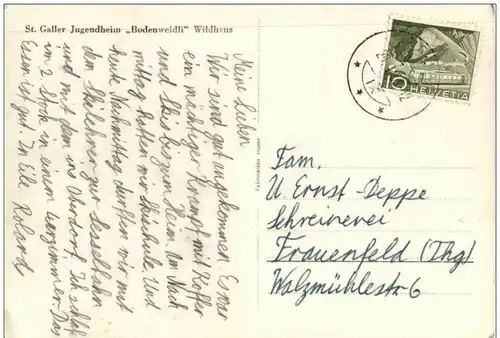 St. Galler Jugendheim „Bodenweidli" Wildhaus
Meine Lieben
Wir sind gut angekommen. Es war
ein mächtiger Krampf mit Koffer
und Skis bis zum Heim. Am Nach-
mittag hatten wir Skischule. Und
heute Nachmittag durften wir mit
dem Skilehrer zur Sesselbahn
und mit dem in Oberdorf. Ich schlafe
im 2 Stock in einem 4erzimmer. Das
Essen ist gut. In Eile Roland
10
HELVETIA
Fam.
U. Ernst-Deppe
Schreinerei
Frauenfeld (Thg)
Walzmühlestr 6